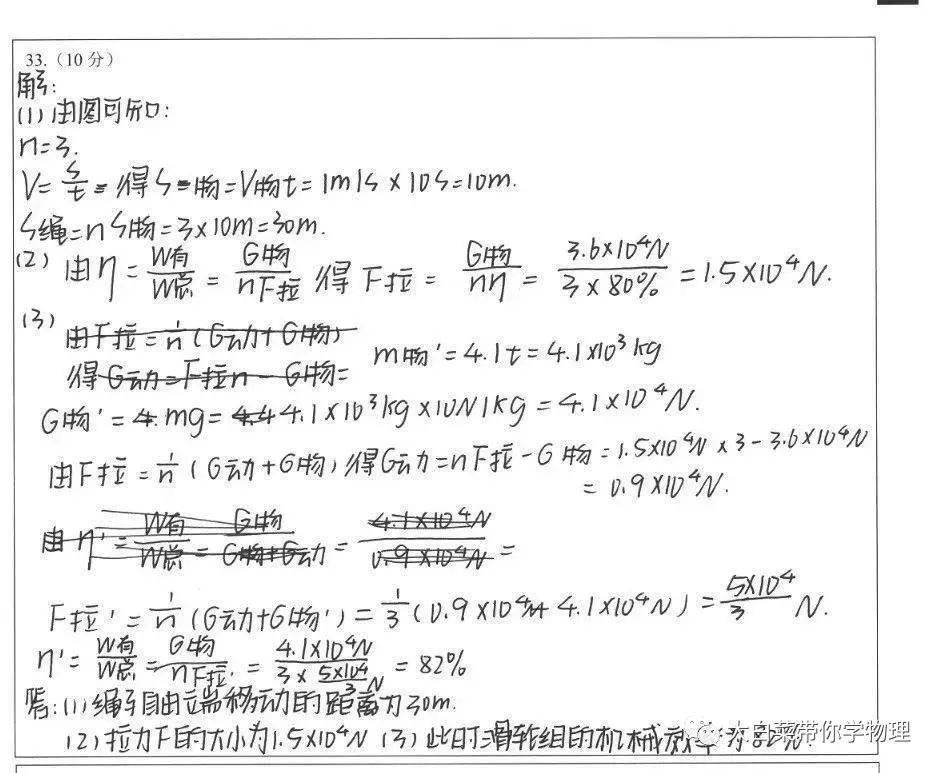 33.（10分）
解:
(1)由图可知:
n=3.
V=s/t=得s=物=V物t=1m/s×10s=10m.
s绳=ns物=3×10m=30m.
(2) 由η=W有/W总=G物/nF拉 得 F拉=G物/nη=3.6×10⁴N/3×80%=1.5×10⁴N.
(3) 由F拉=1/n(G动+G物)
得G动=F拉n-G物= m物'=4.1t=4.1×10³kg
G物'=4.mg=4.4 4.1×10³kg×10N/kg=4.1×10⁴N.
由F拉=1/n(G动+G物)得G动=nF拉-G物=1.5×10⁴N×3-3.6×10⁴N
=0.9×10⁴N.
由η'=W有/W总=G物/G物+G动=4.1×10⁴N/0.9×10⁴N=
F拉'=1/n(G动+G物')=1/3(0.9×10⁴N+4.1×10⁴N)=5×10⁴/3 N.
η'=W有/W总=G物/nF拉.=4.1×10⁴N/3×5×10⁴/3N=82%
答:(1)绳子自由端移动的距离为30m.
(2)拉力F的大小为1.5×10⁴N (3)此时滑轮组的机械效率为82%.
大白菜带你学物理